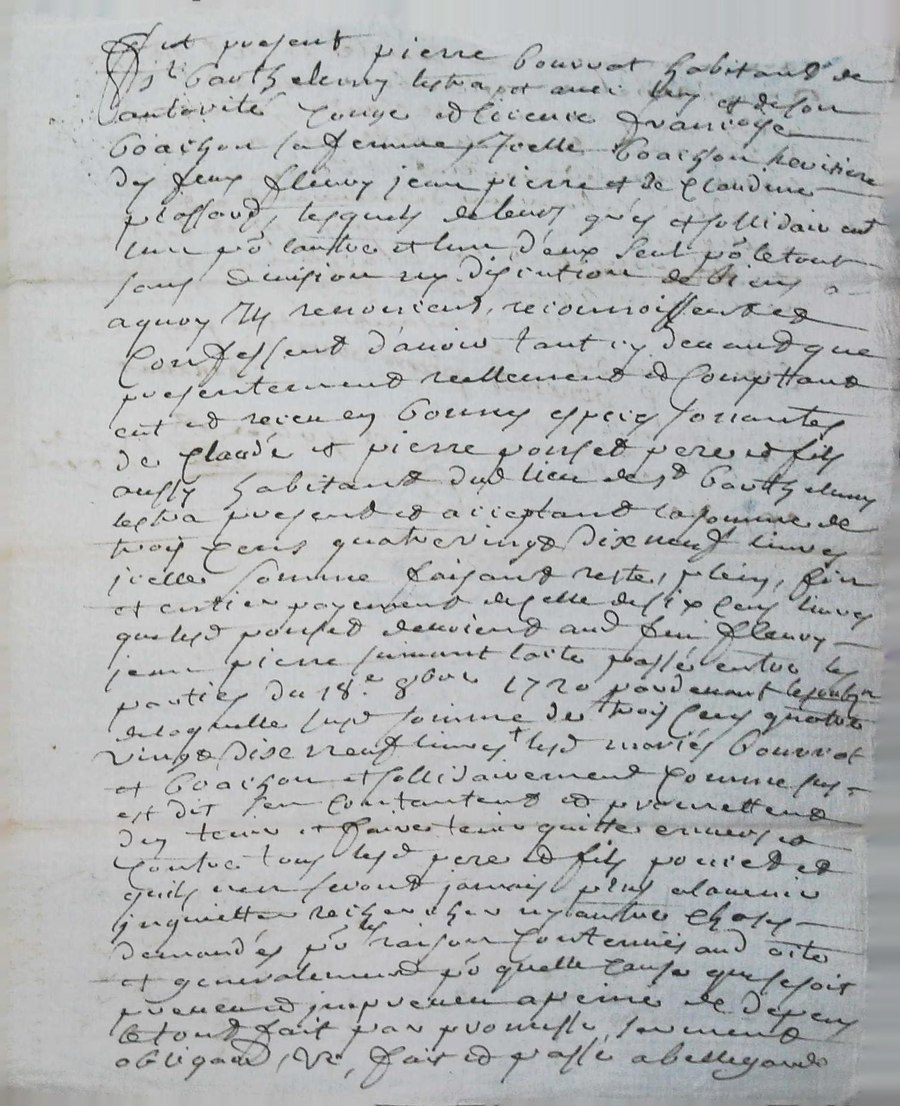 fut present pierre bouvrot habitand de
st barthelemy lestra et avec luy et de son
autorité conge et licence francoise
boaichon sa femme, icelle boaichon heritiere
des feux fleury jean pierre et de claudine
plassard, lesquels de leurs grés et sollidairemt
lun po lautre et lun deux seul po le tout
sans division ny discution de biens a
aquoy Ils renoncent, reconnoissent et
Confessent d'avoir tant cy devand que
presentement reellement et Compttand
eut et receu en bonnes espeices sonantes
de Claude et pierre ponset pere et fils
aussy habitand dud lieu de st barthelemy
lestra present et acceptand la somme de
trois cens quatre vingt dix neuf livres
icelle somme faisand reste, plein, fin
et entier payement de celle de six cens livres
que lesd ponset devoiend aud feu fleury
jean pierre suivant lacte passé entre les
parties du 18e 8bre 1720 pardevant le soubsne
de laquelle susd somme de trois cens quattre
vingt dix neuf livres lesd mariés bouvrot
et boaichon et sollidairement comme sus
est dit sen contantend et promettend
den tenir et faire tenir quitte envers et
contre tous lesd pere et fils poncet et
quils nen seront jamais plus alavenir
inquietter rechercher ny autre choses
demandés po les raison contenues aud acte
et generalement po quelle cause que se soit
preveue et inpreveue a peine de depens
le toud fait par promesse, serment
obligaon, &c, fait et passé a bellegarde